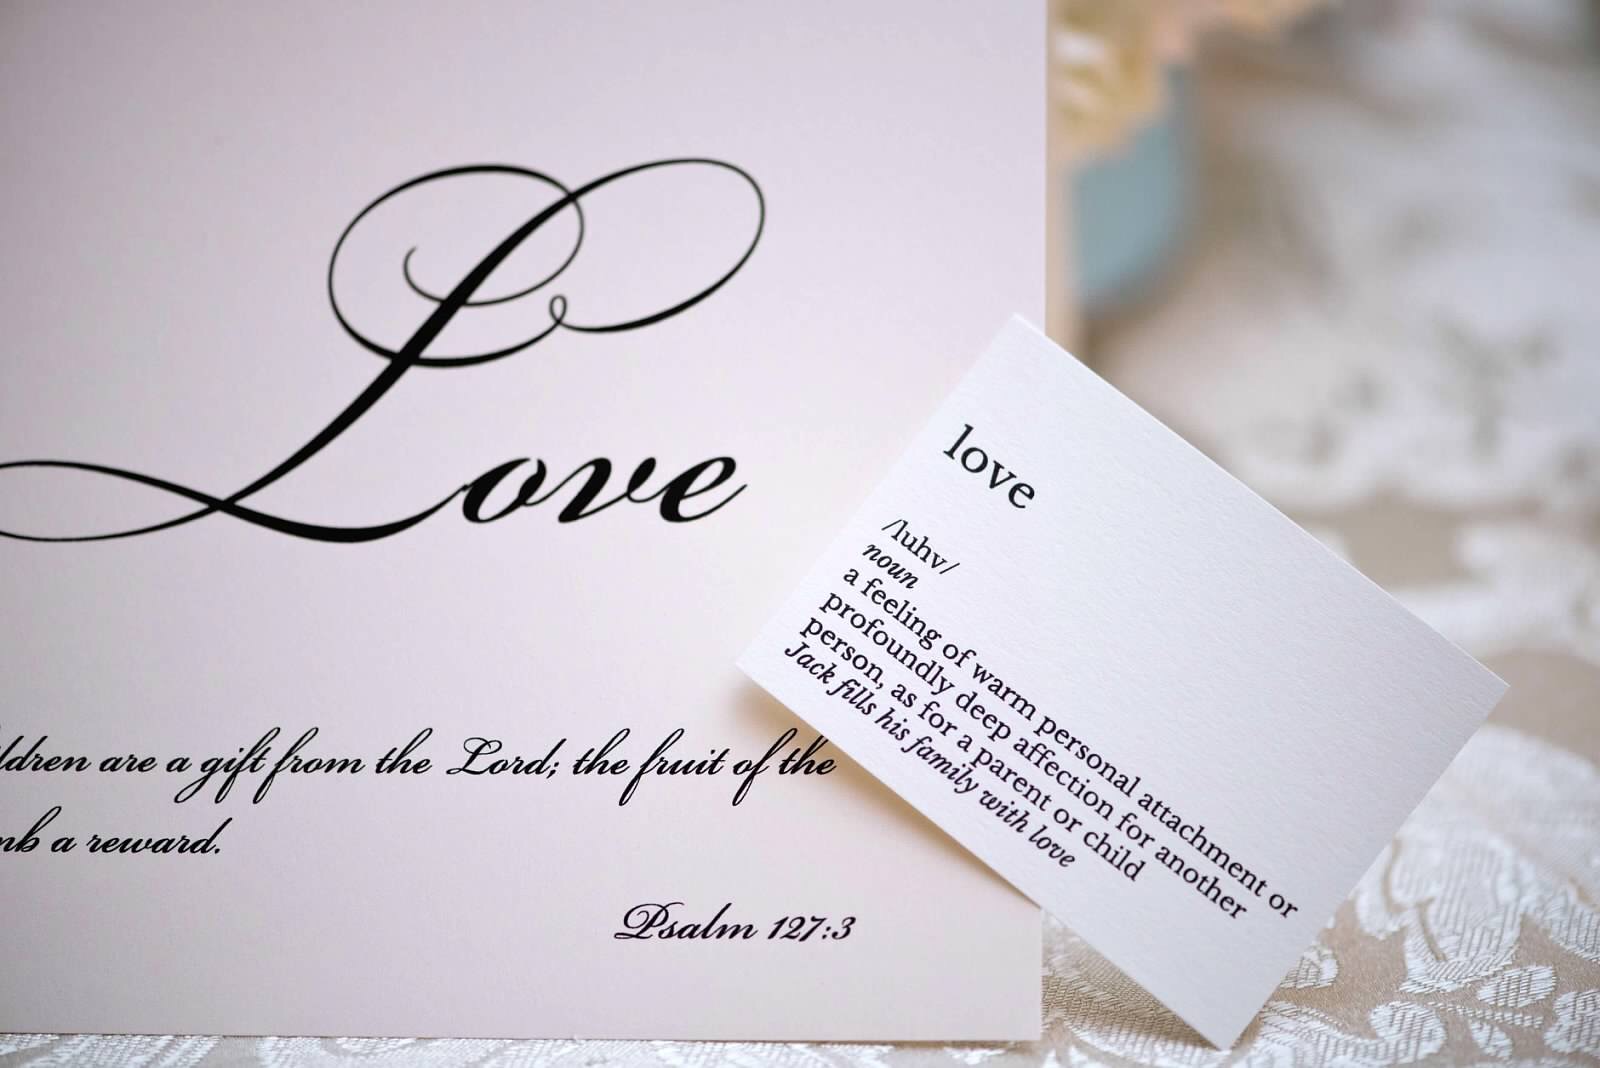 Love
ldren are a gift from the Lord; the fruit of the
mb a reward.
Psalm 127:3
love
/luhv/
noun
a feeling of warm personal attachment or
profoundly deep affection for another
person, as for a parent or child
Jack fills his family with love